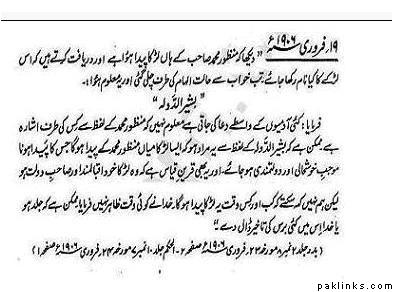 ۱۹؍ فروری ۱۹۰۶ء " دیکھا کہ منظور محمد صاحب کے ہاں لڑکا پیدا ہوا ہے اور دریافت کرتے ہیں کہ اس
لڑکے کا کیا نام رکھا جائے۔ تب خواب سے حالت الہام کی طرف چلی گئی اور یہ معلوم ہوا :۔
" بشیر الدّولہ "
فرمایا : کئی آدمیوں کے واسطے دعا کی جاتی ہے معلوم نہیں کہ منظور محمد کے لفظ سے کس کی طرف اشارہ
ہے ممکن ہے کہ بشیر الدولہ کے لفظ سے یہ مراد ہو کہ ایسا لڑکا میاں منظور محمد کے پیدا ہوگا جس کا پیدا ہونا
موجبِ خوشحالی اور دولتمندی ہو جائے، اور یہ بھی قرین قیاس ہے کہ وہ لڑکا خود اقبالمند اور صاحبِ دولت ہو
لیکن ہم نہیں کہہ سکتے کہ کب اور کس وقت یہ لڑکا پیدا ہوگا۔ خدا نے کوئی وقت ظاہر نہیں فرمایا ممکن ہے کہ جلد ہو
یا خدا اس میں کئی برس کی تاخیر ڈال دے "
( بدر جلد ۲ نمبر ۸ مورخہ ۲۳؍ فروری ۱۹۰۶ء صفحہ ۲ - الحکم جلد ۱۰ نمبر ۷ مورخہ ۲۴؍ فروری ۱۹۰۶ء صفحہ ۱ )
paklinks.com